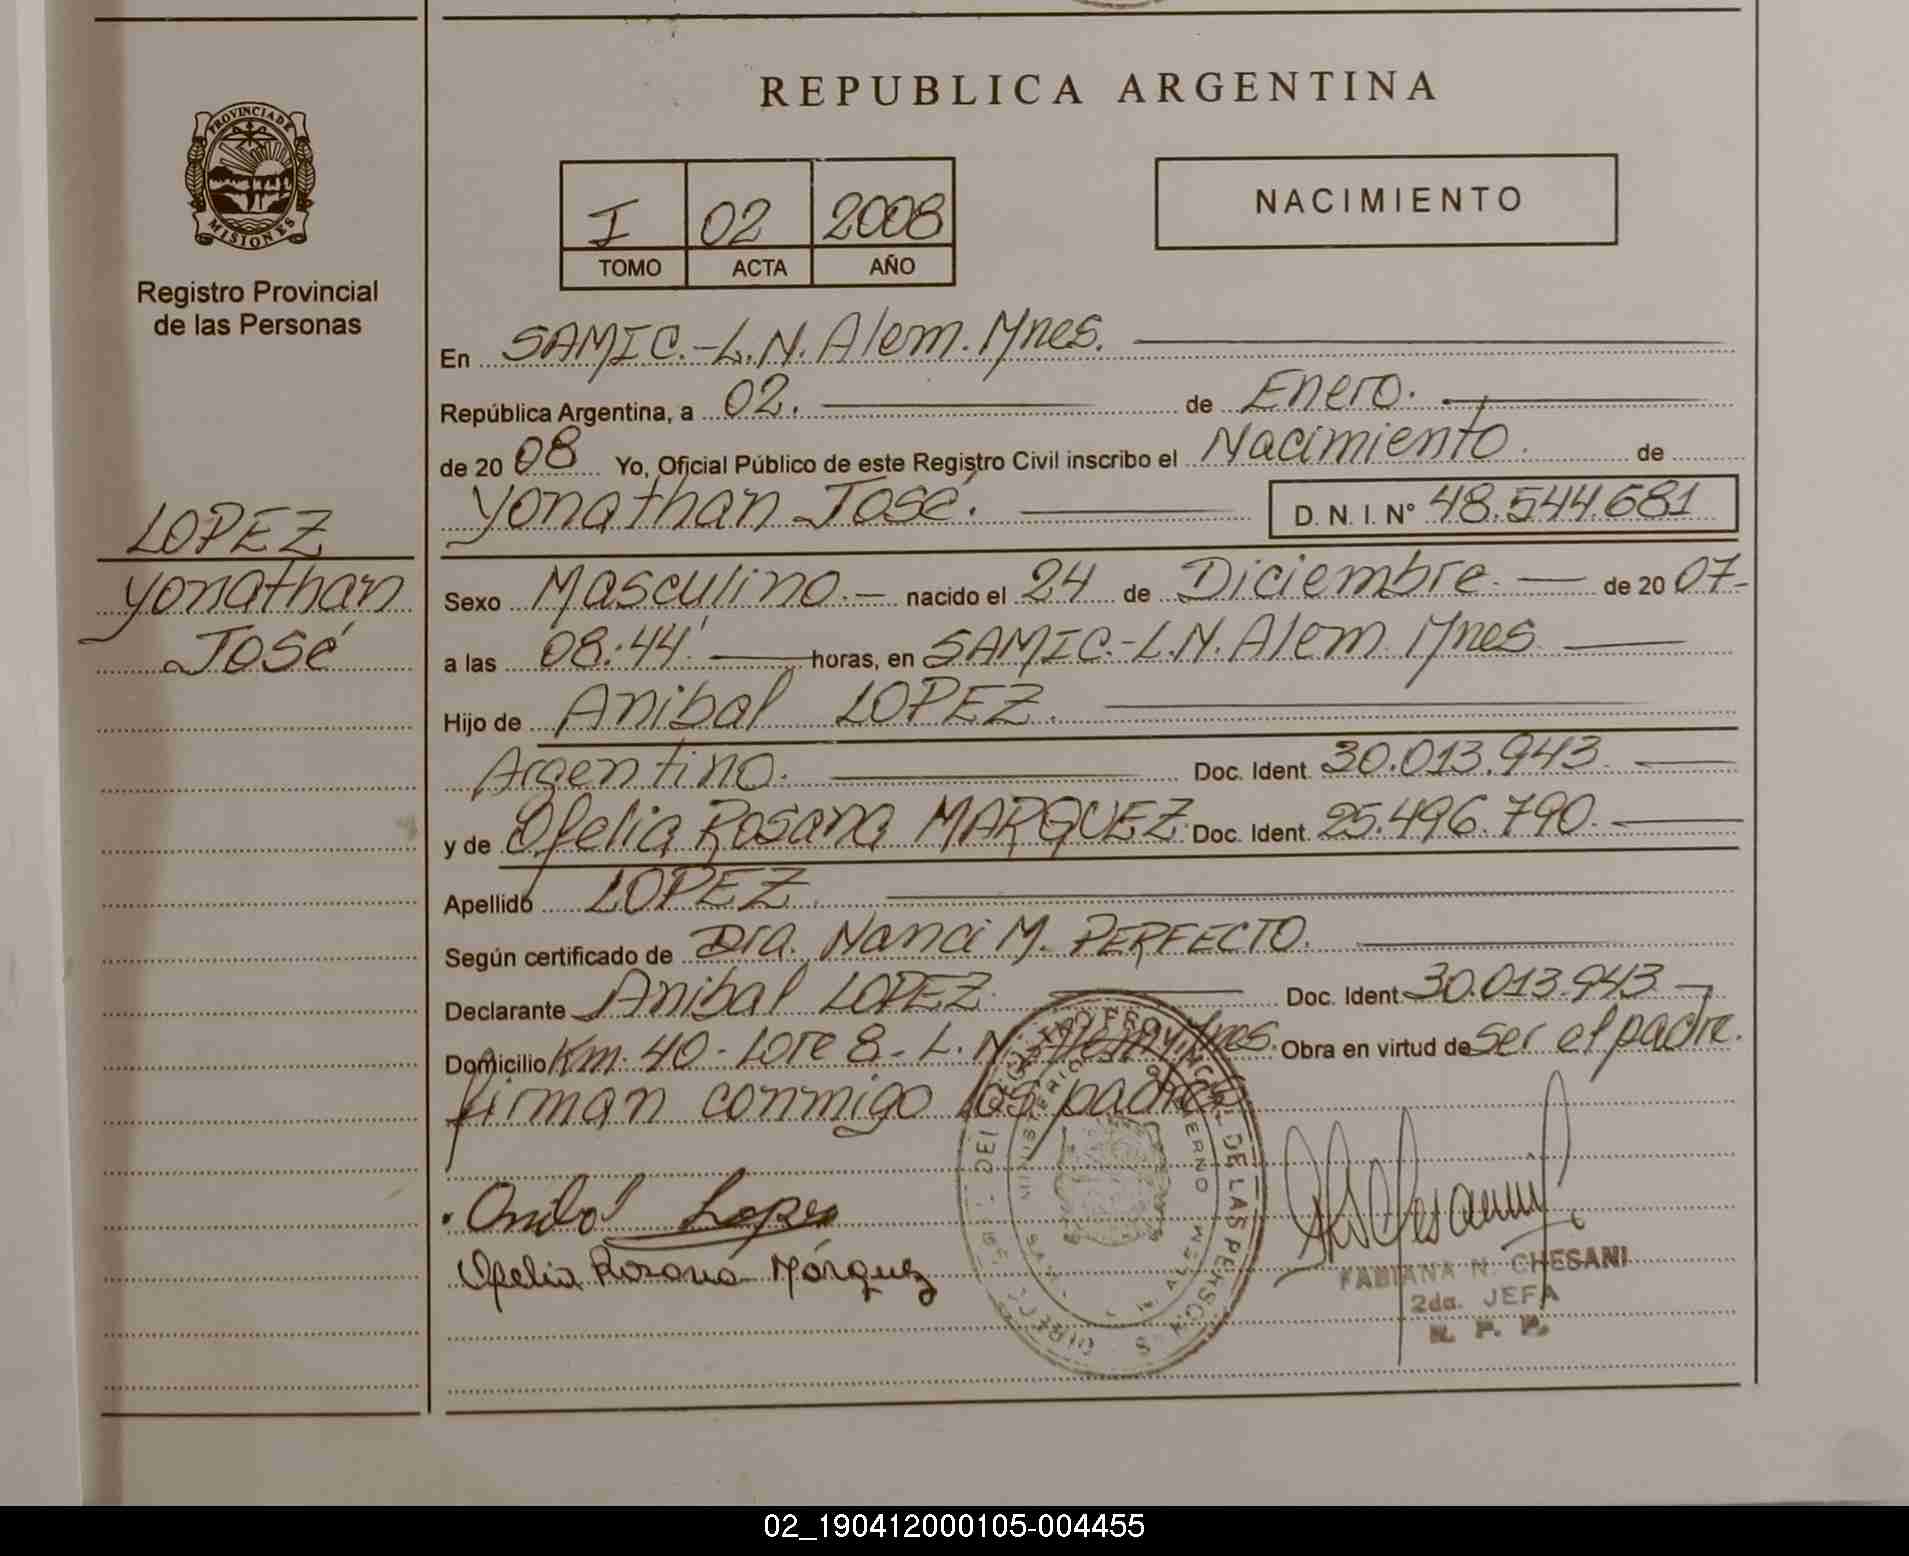 REPUBLICA ARGENTINA
PROVINCIA DE
MISIONES
Registro Provincial
de las Personas
I 02 2008
TOMO ACTA AÑO
NACIMIENTO
En SAMIC.-L.N.Alem.Mnes.
República Argentina, a 02. de Enero.
de 20 08 Yo, Oficial Público de este Registro Civil inscribo el Nacimiento. de
Yonathan José. D. N. I. Nº 48.544.681
LOPEZ
Yonathan
José
Sexo Masculino.- nacido el 24 de Diciembre. de 20 07-
a las 08:44' horas, en SAMIC.-L.N.Alem.Mnes
Hijo de Anibal LOPEZ.
Argentino. Doc. Ident. 30.013.943.
y de Ofelia Rosana MARQUEZ. Doc. Ident. 25.496.790.
Apellido LOPEZ.
Según certificado de Dra. Nanci M. PERFECTO.
Declarante Anibal LOPEZ. Doc. Ident. 30.013.943
Domicilio Km. 40 - Lote 8 - L. N. Alem, Mnes. Obra en virtud de ser el padre.
firman conmigo los padres
Anibal Lopez
Ofelia Rosana Márquez
DE LAS PERSONAS
MINISTERIO GOBIERNO
ALEM
FABIANA N. CHESANI
2da. JEFA
R. P. P.
02_190412000105-004455